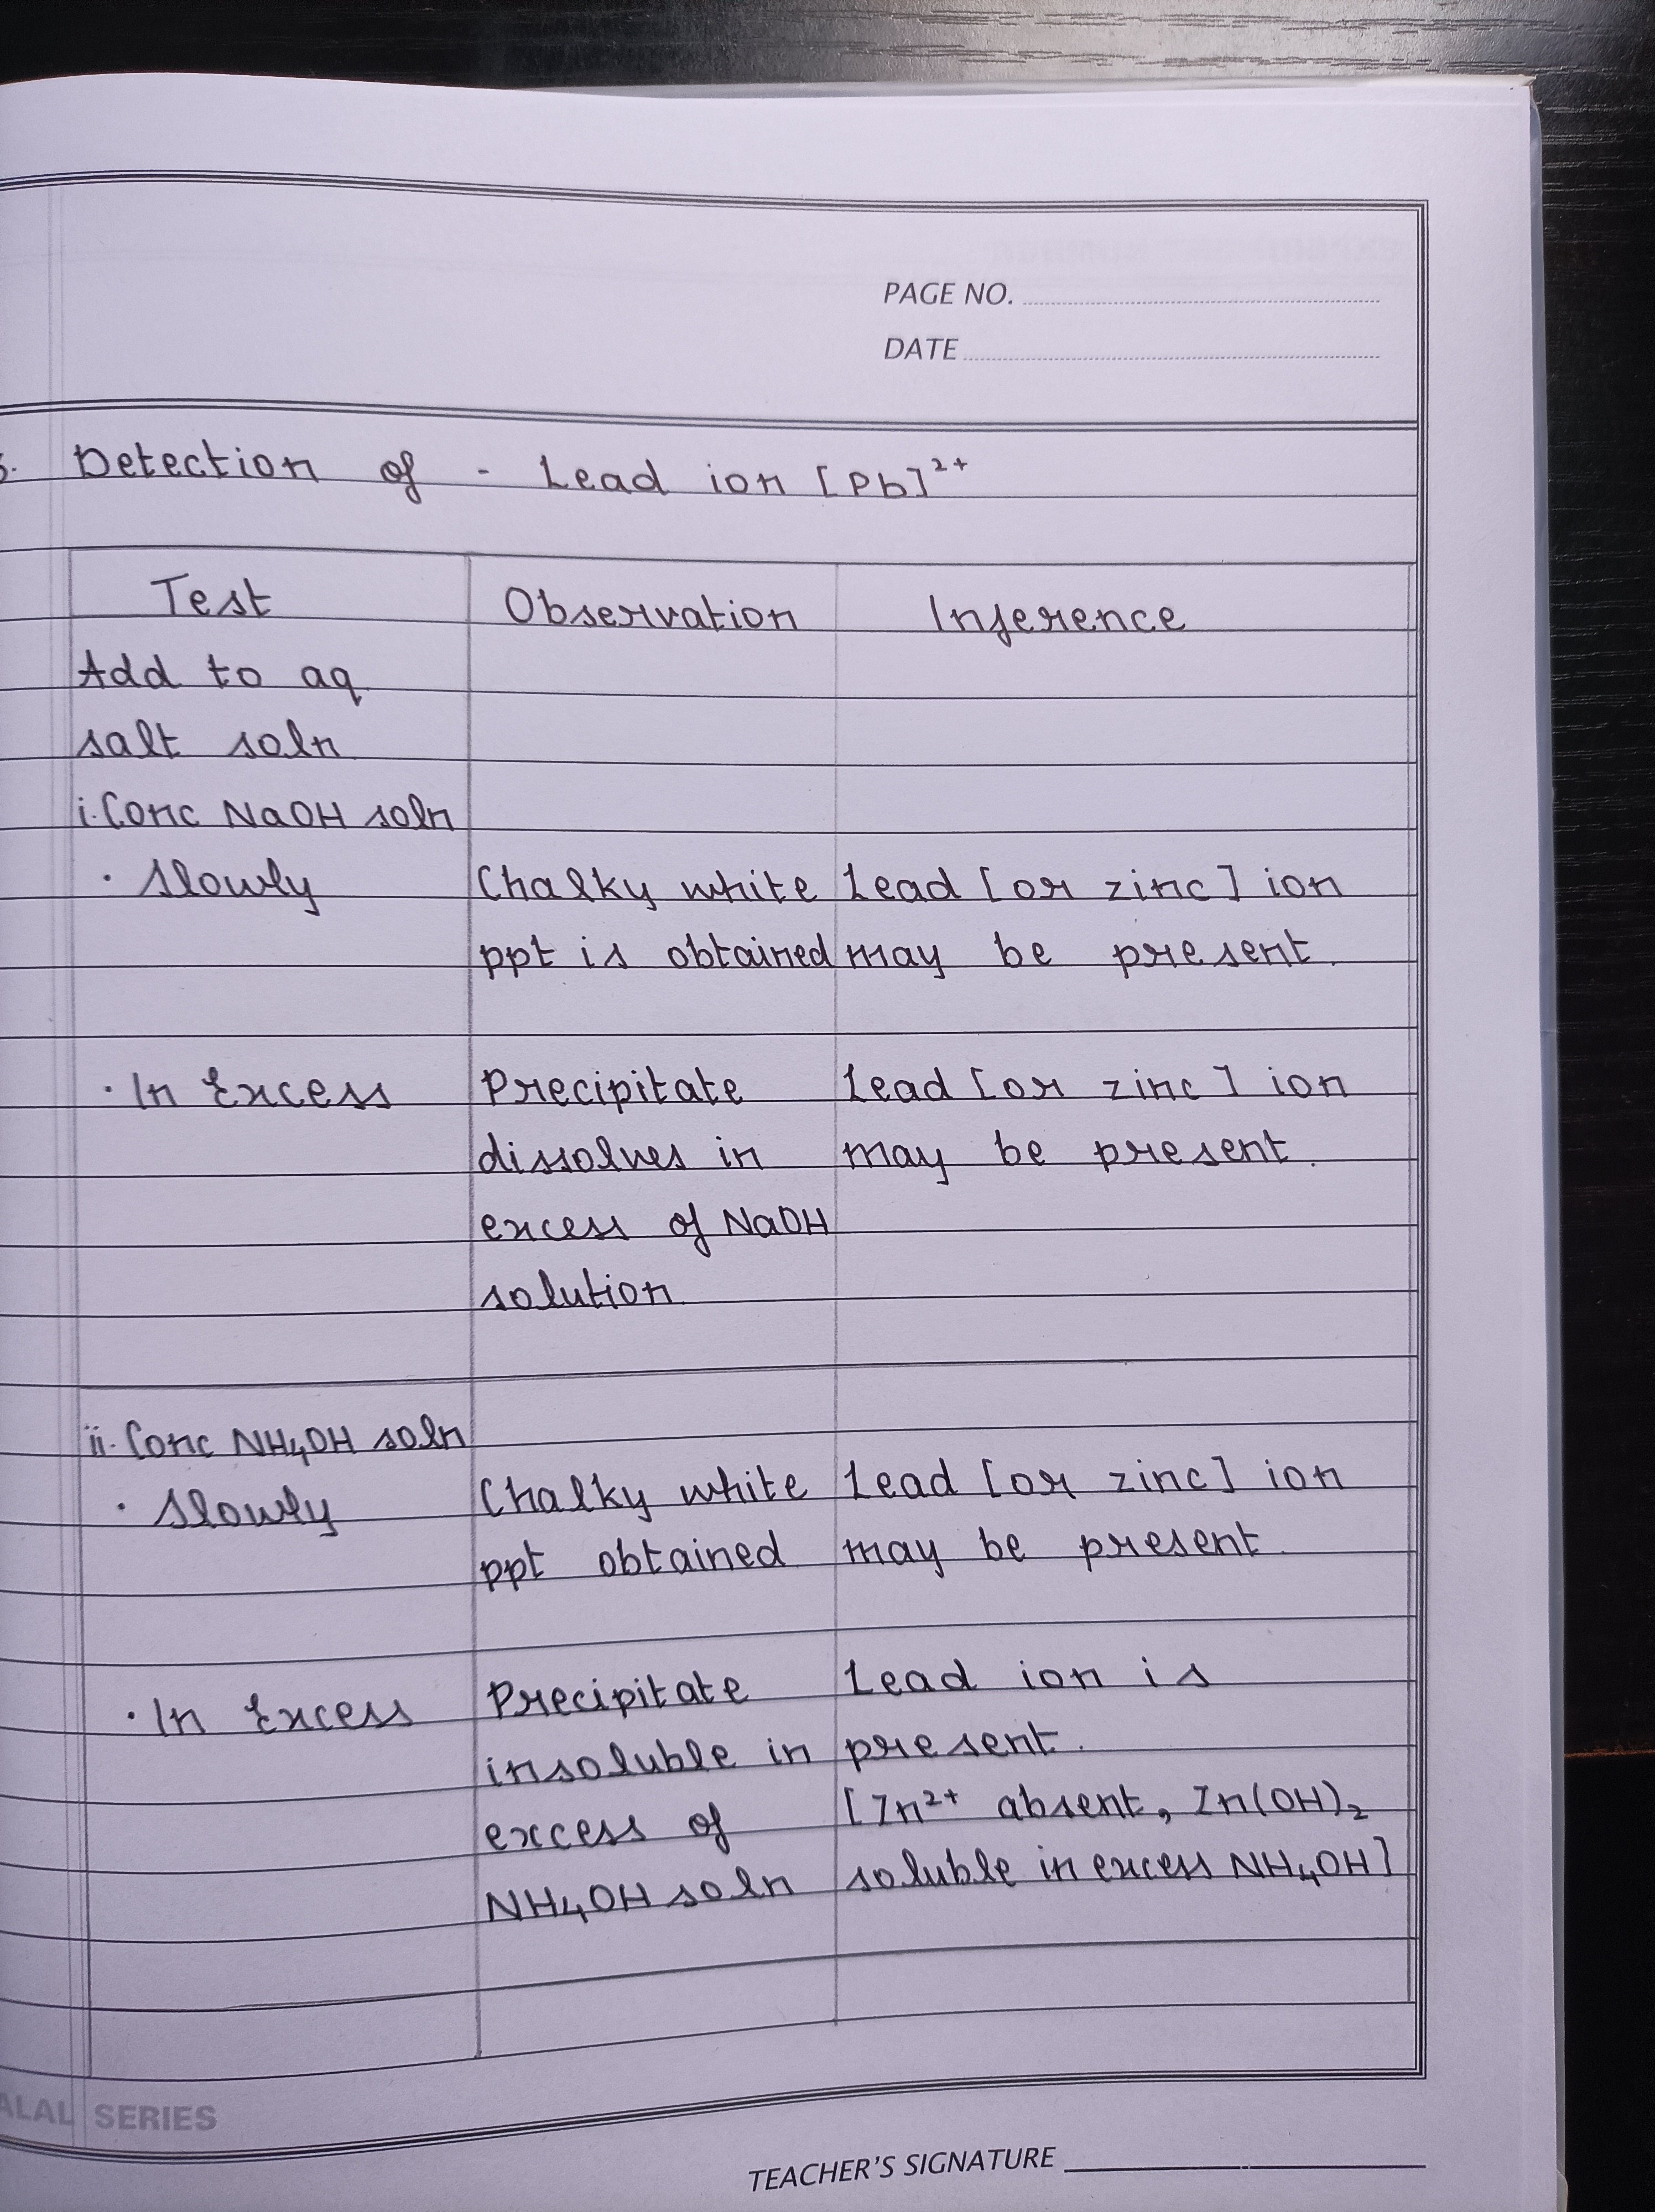 PAGE NO.
DATE
Detection of - Lead ion [Pb]²⁺
Test Observation Inference
Add to aq
salt soln
i. Conc NaOH soln
• Slowly Chalky white Lead [or zinc] ion
ppt is obtained may be present.
• In Excess Precipitate Lead [or zinc] ion
dissolves in may be present.
excess of NaOH
solution.
ii. Conc NH₄OH soln
• Slowly Chalky white Lead [or zinc] ion
ppt obtained may be present.
• In Excess Precipitate Lead ion is
insoluble in present.
excess of [Zn²⁺ absent, Zn(OH)₂
NH₄OH soln soluble in excess NH₄OH]
ALAL SERIES
TEACHER'S SIGNATURE